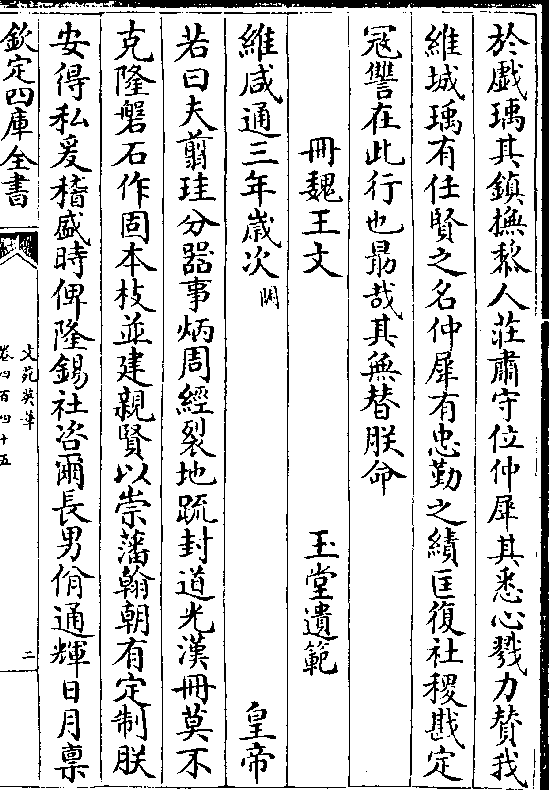 於戲瑀其鎮撫黎人莊肅守位仲犀其悉心戮力贊我
維城瑀有任賢之名仲犀有忠勤之績匡復社稷戡定
冦讐在此行也勗哉其無替朕命
冊魏王文 玉堂遺範
維咸通三年嵗次闕 皇帝
若曰夫翦珪分器事炳周經裂地疏封道光漢冊莫不
克隆磐石作固本枝並建親賢以崇藩翰朝有定制朕
安得私爰稽盛時俾隆錫社咨爾長男佾通輝日月禀
欽定四庫全書
文苑英華
卷四百四十五
二